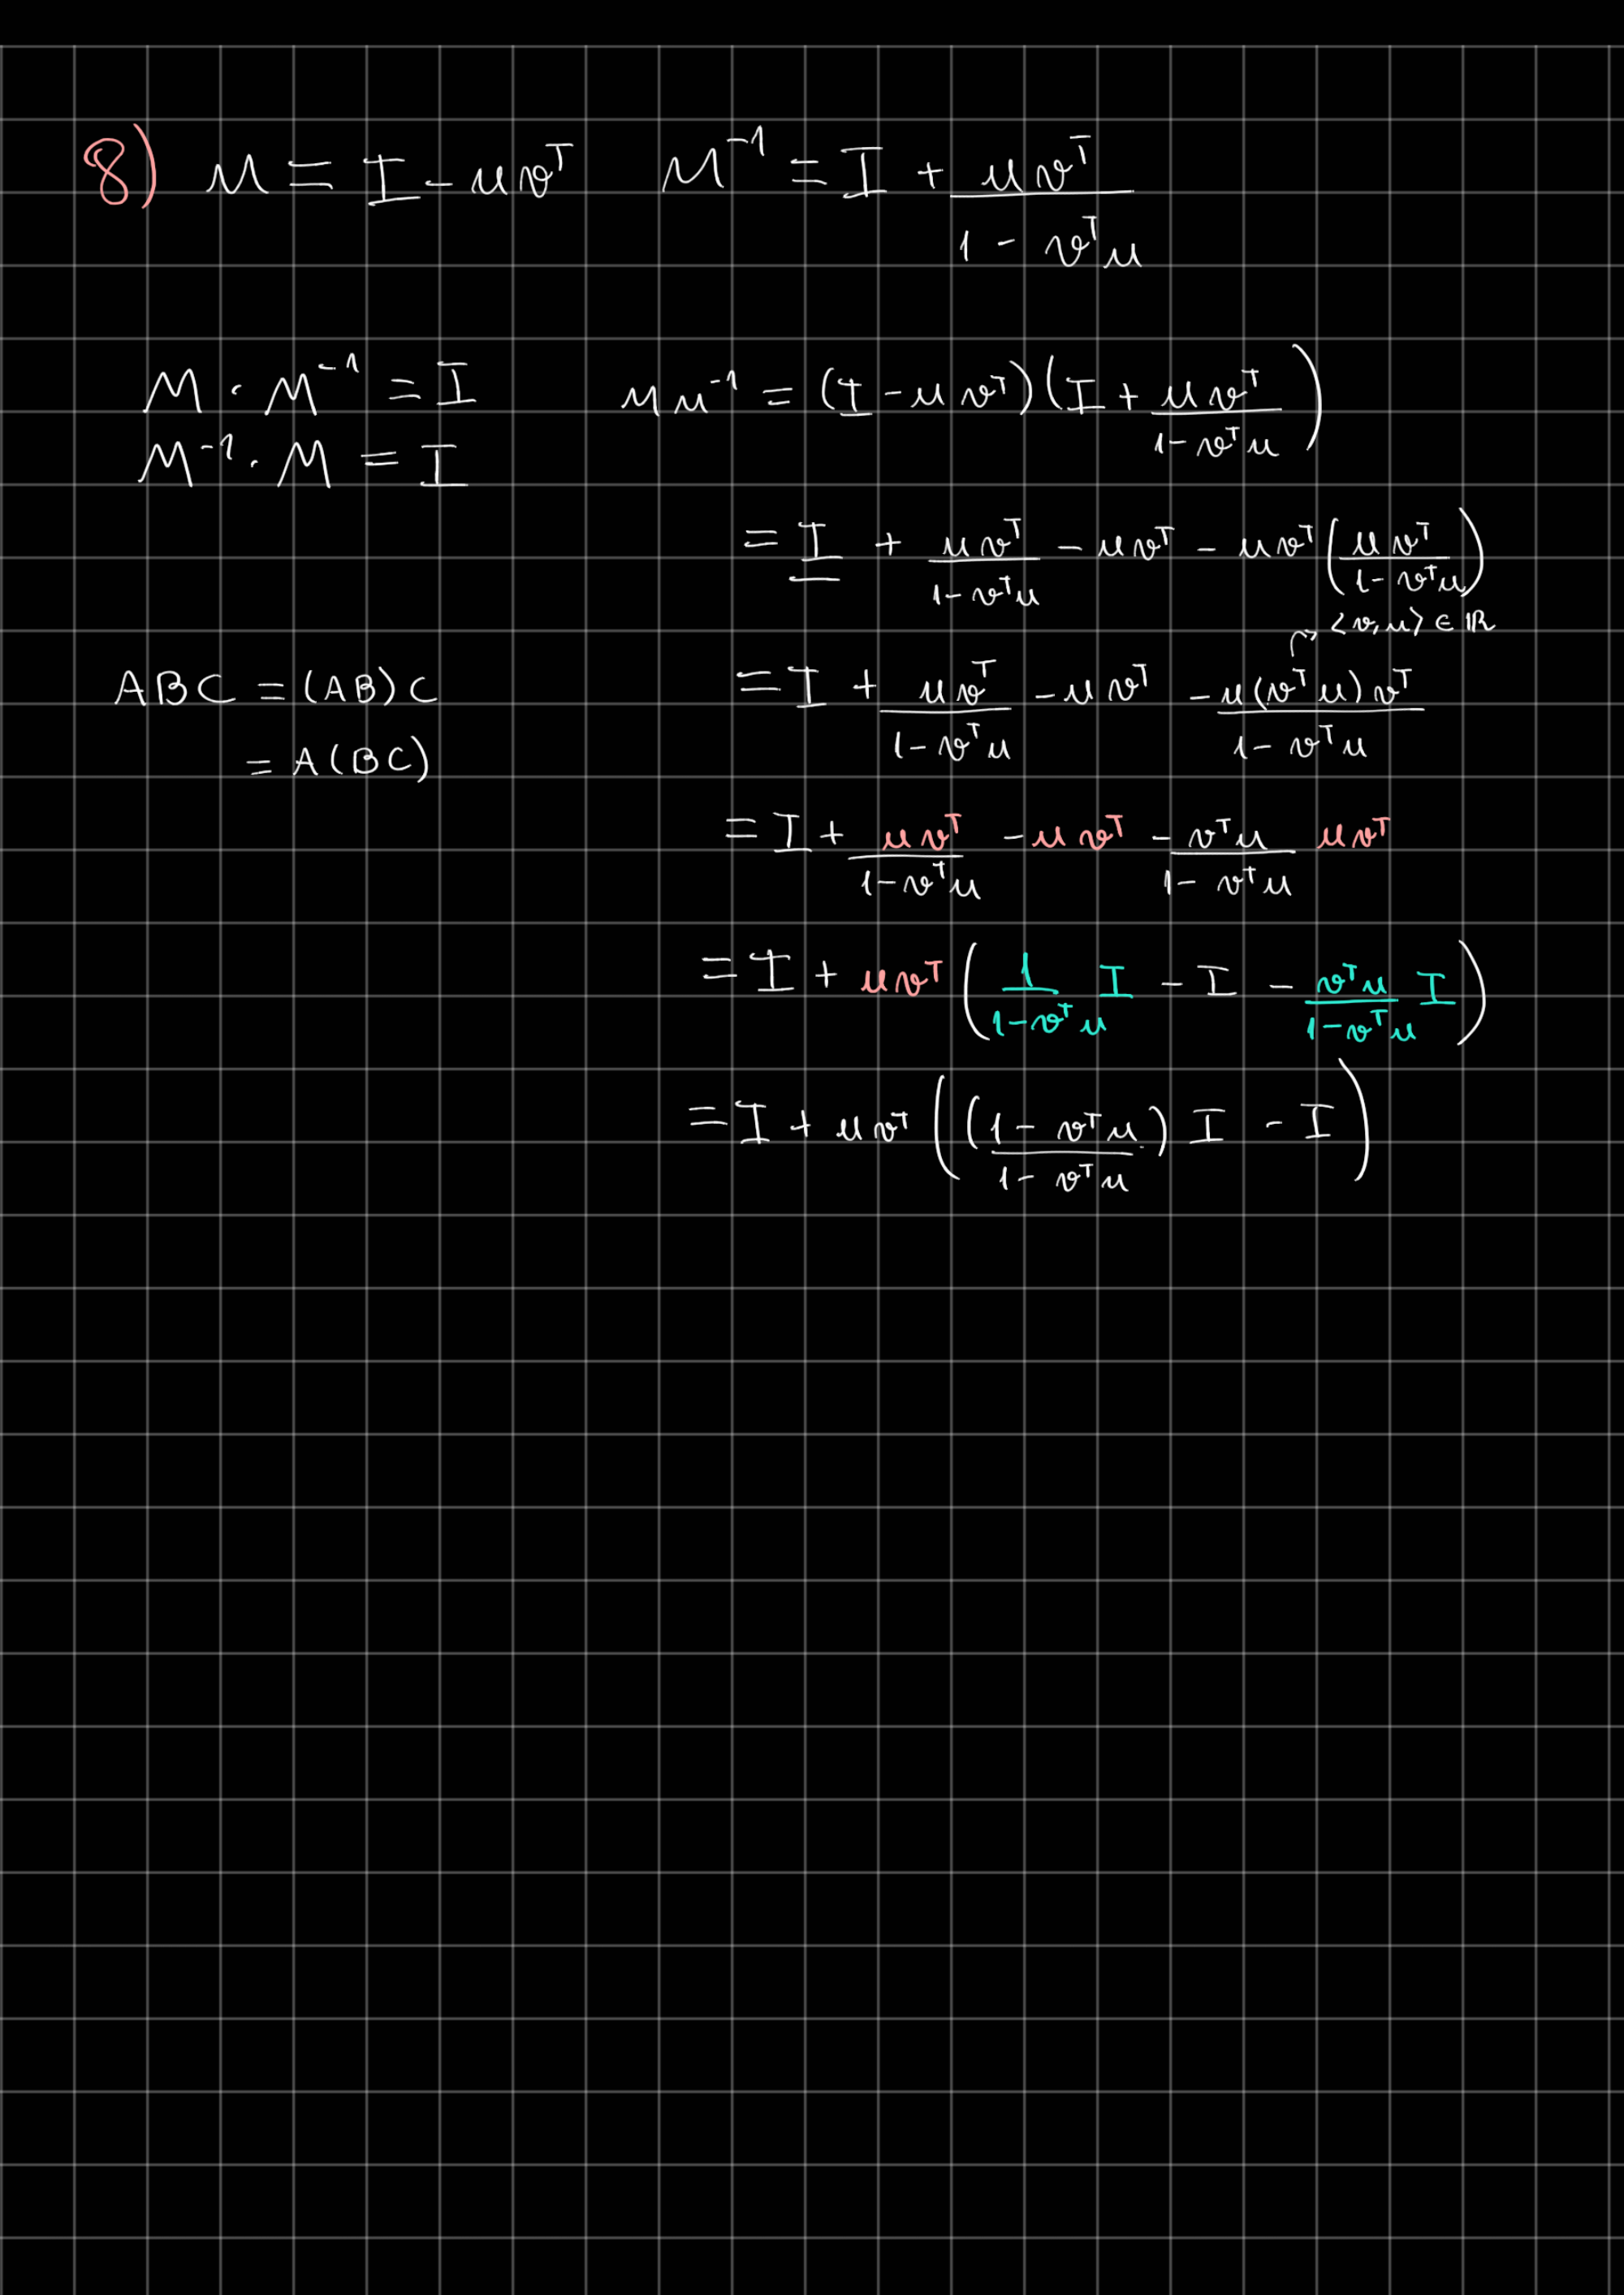 8) M = I - uvᵀ   M⁻¹ = I + uvᵀ / (1 - vᵀu)
M · M⁻¹ = I   MM⁻¹ = (I - uvᵀ)(I + uvᵀ / (1 - vᵀu))
M⁻¹ · M = I
= I + uvᵀ / (1 - vᵀu) - uvᵀ - uvᵀ(uvᵀ / (1 - vᵀu))
→ <v, u> ∈ ℝ
ABC = (AB)C   = I + uvᵀ / (1 - vᵀu) - uvᵀ - u(vᵀu)vᵀ / (1 - vᵀu)
= A(BC)
= I + uvᵀ / (1 - vᵀu) - uvᵀ - vᵀu / (1 - vᵀu) uvᵀ
= I + uvᵀ(1 / (1 - vᵀu) I - I - vᵀu / (1 - vᵀu) I)
= I + uvᵀ(((1 - vᵀu) / (1 - vᵀu)) I - I)